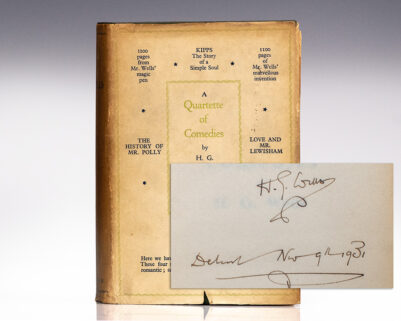 1100
pages
from
Mr. Wells'
magic
pen
KIPPS
The Story
of a
Simple Soul
1100
pages
of
Mr. Wells'
marvellous
invention
A
Quartette
of
Comedies
by
H. G.
THE
HISTORY OF
MR. POLLY
LOVE AND
MR.
LEWISHAM
Here we hav
These four
romantic; s
H. G. Wells
Detroit Nov 9th 1931